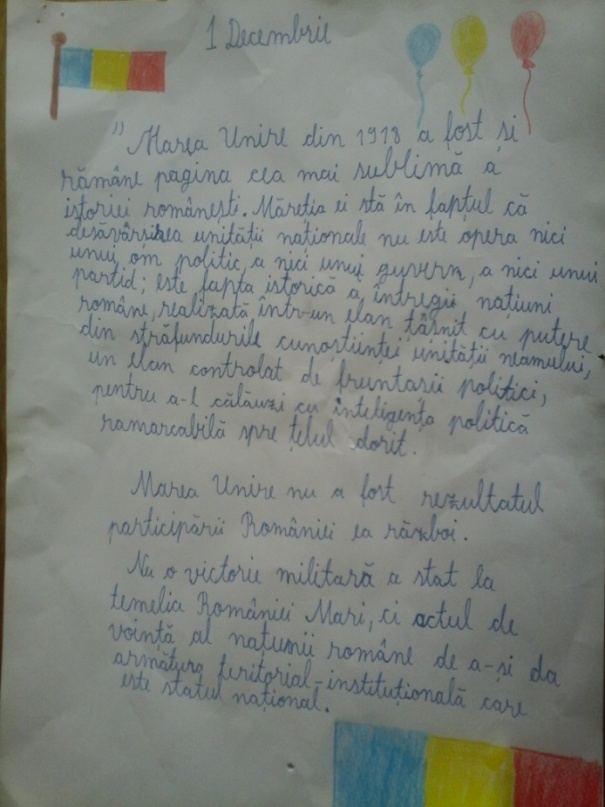 1 Decembrie
" Marea Unire din 1918 a fost și
rămâne pagina cea mai sublimă a
istoriei românești. Măreția ei stă în faptul că
desăvârșirea unității naționale nu este opera nici
unui om politic, a nici unui guvern, a nici unui
partid; este fapta istorică a întregii națiuni
române, realizată într-un elan țâșnit cu putere
din străfundurile cunoștiinței unității neamului,
un elan controlat de fruntarii politici,
pentru a-l călăuzi cu inteligența politică
ramarcabilă spre țelul dorit.
Marea Unire nu a fost rezultatul
participării României ea război.
Nu o victorie militară a stat la
temelia României Mari, ci actul de
voință al națiunii române de a-și da
armătura teritorial-instituțională care
este statul național.